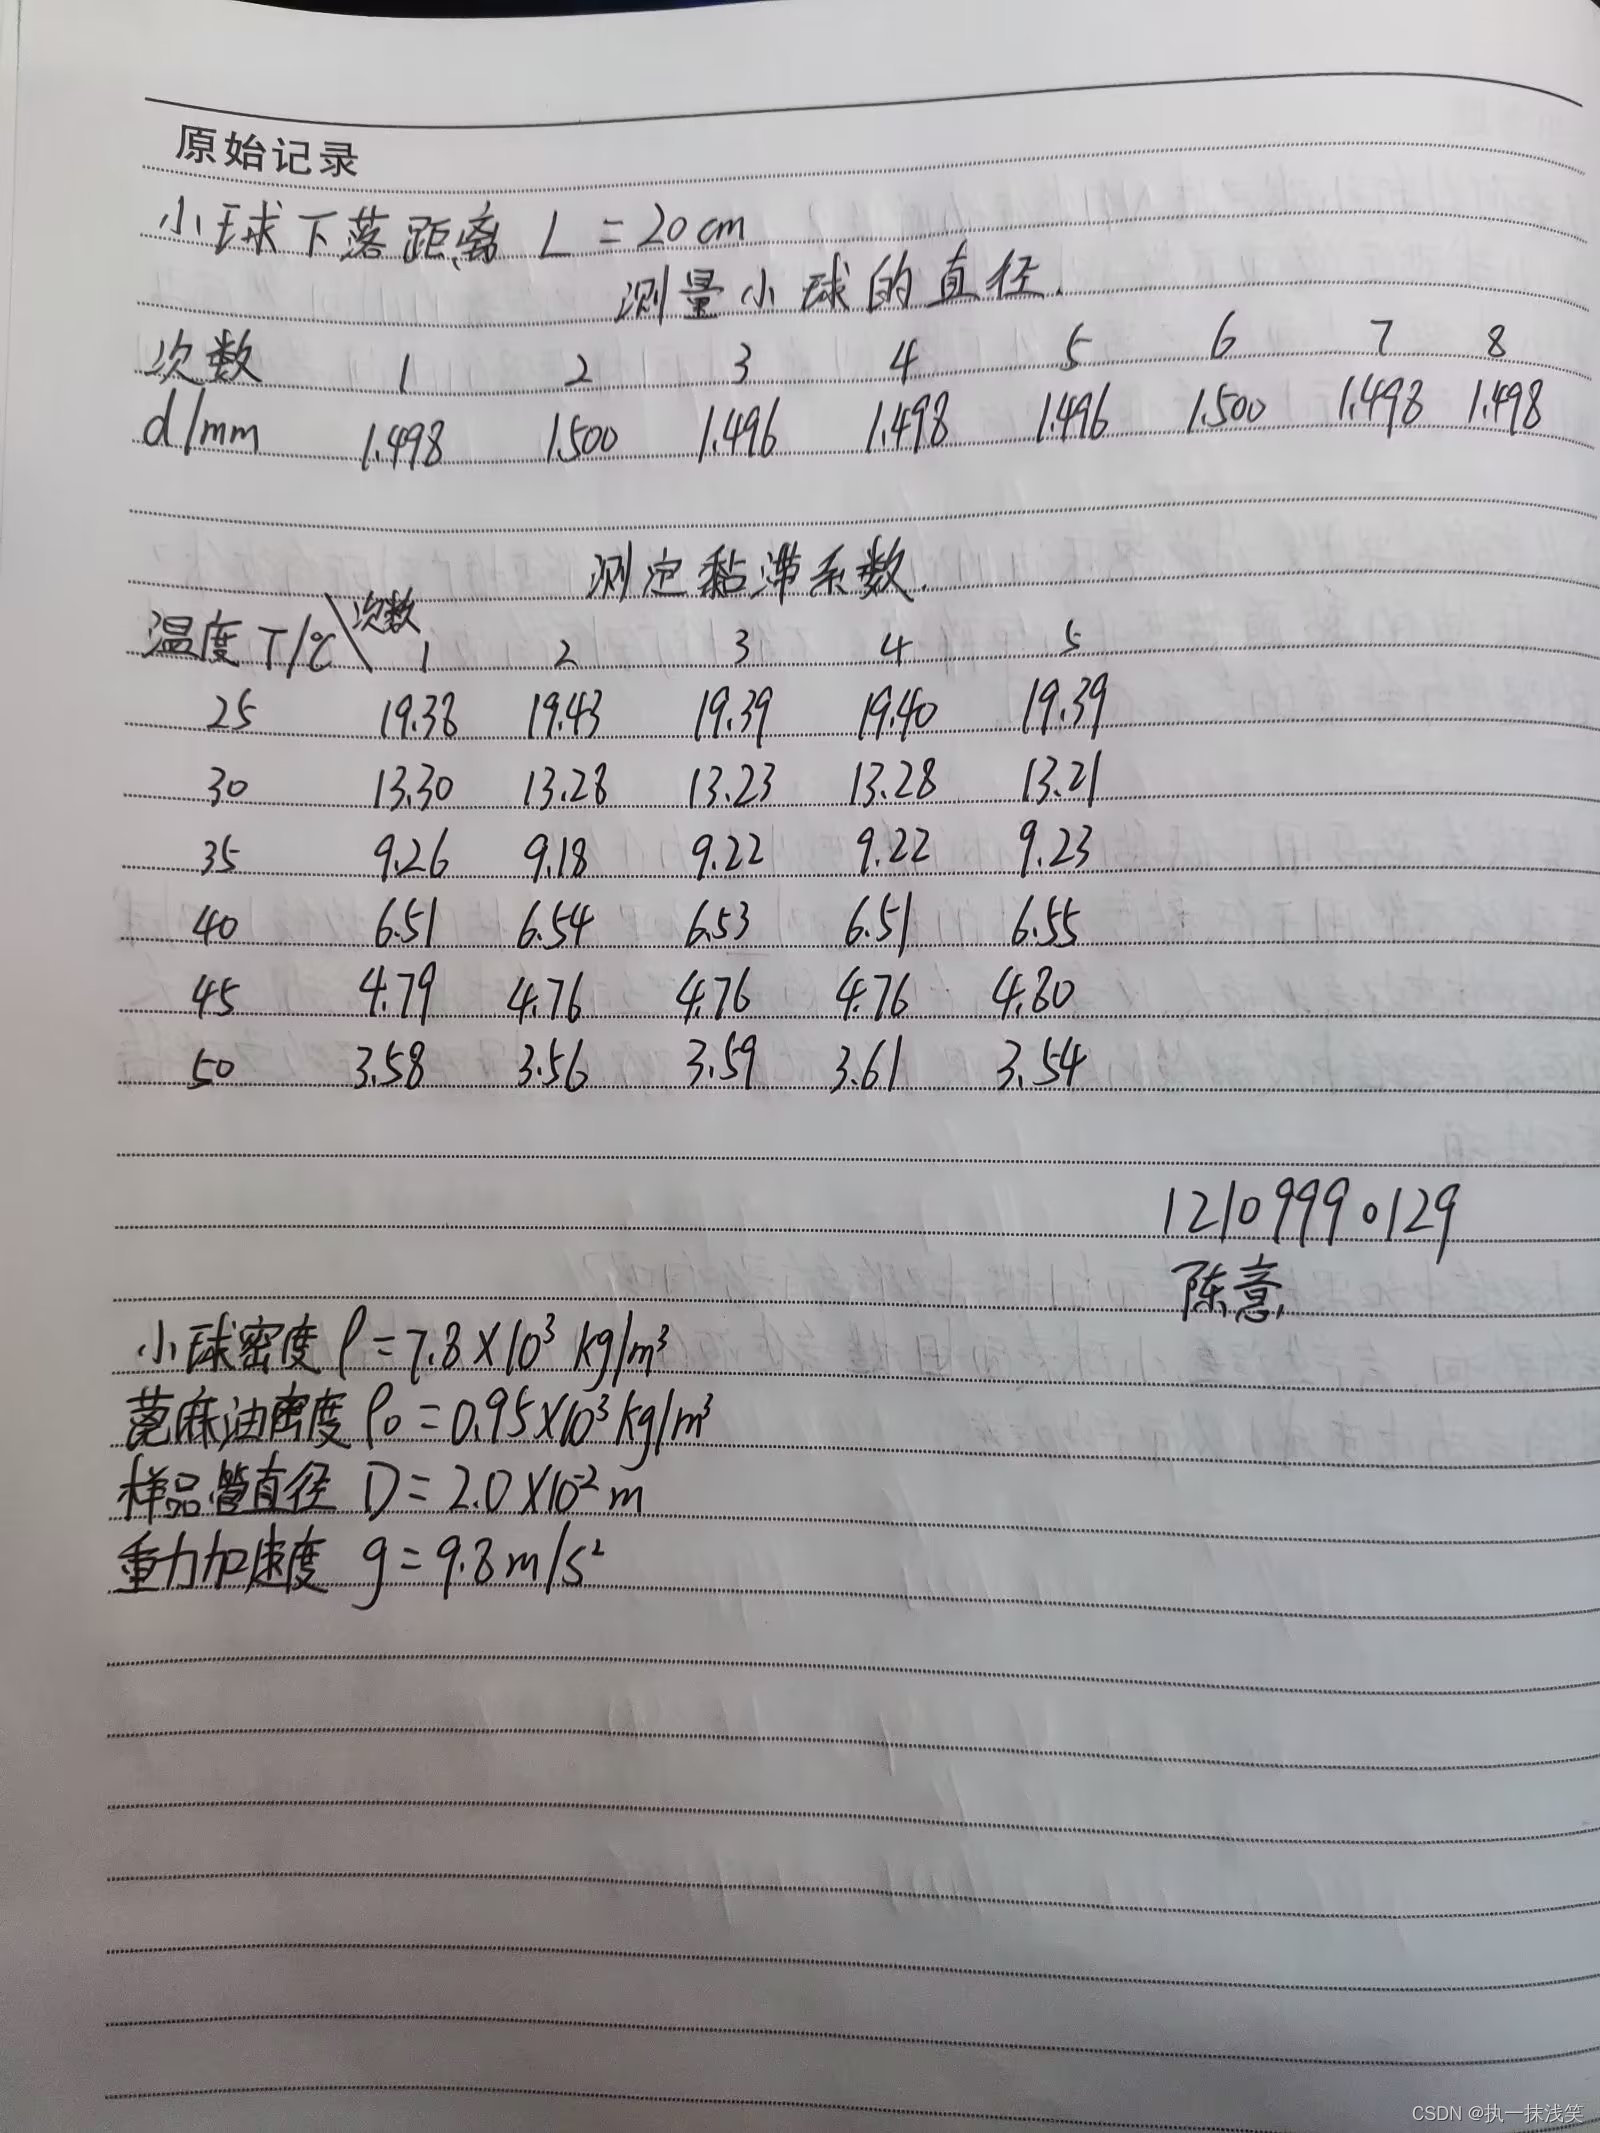 原始记录
小球下落距离 L = 20cm
测量小球的直径.
次数 1 2 3 4 5 6 7 8
d/mm 1.498 1.500 1.496 1.498 1.496 1.500 1.498 1.498
测定黏滞系数.
温度T/℃\次数 1 2 3 4 5
25 19.38 19.43 19.39 19.40 19.39
30 13.30 13.28 13.23 13.28 13.21
35 9.26 9.18 9.22 9.22 9.23
40 6.51 6.54 6.53 6.51 6.55
45 4.79 4.76 4.76 4.76 4.80
50 3.58 3.56 3.59 3.61 3.54
12109990129
陈意
小球密度 ρ=7.8×10³ kg/m³
蓖麻油密度 ρ₀=0.95×10³ kg/m³
样品管直径 D=2.0×10⁻² m
重力加速度 g=9.8m/s²
CSDN @执一抹浅笑